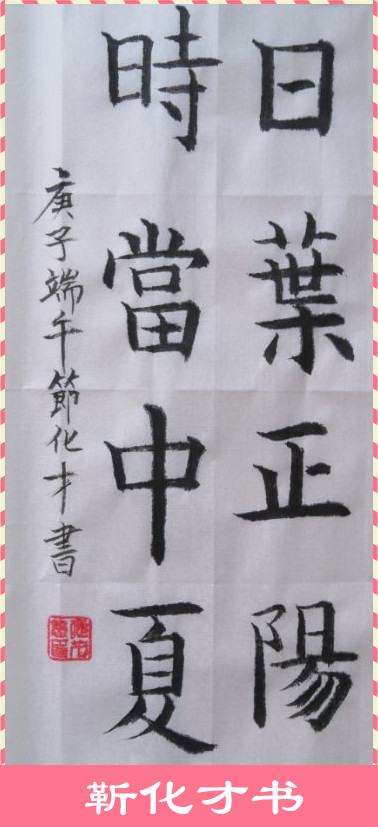 日葉正陽
時當中夏
庚子端午節化才書
靳化才书